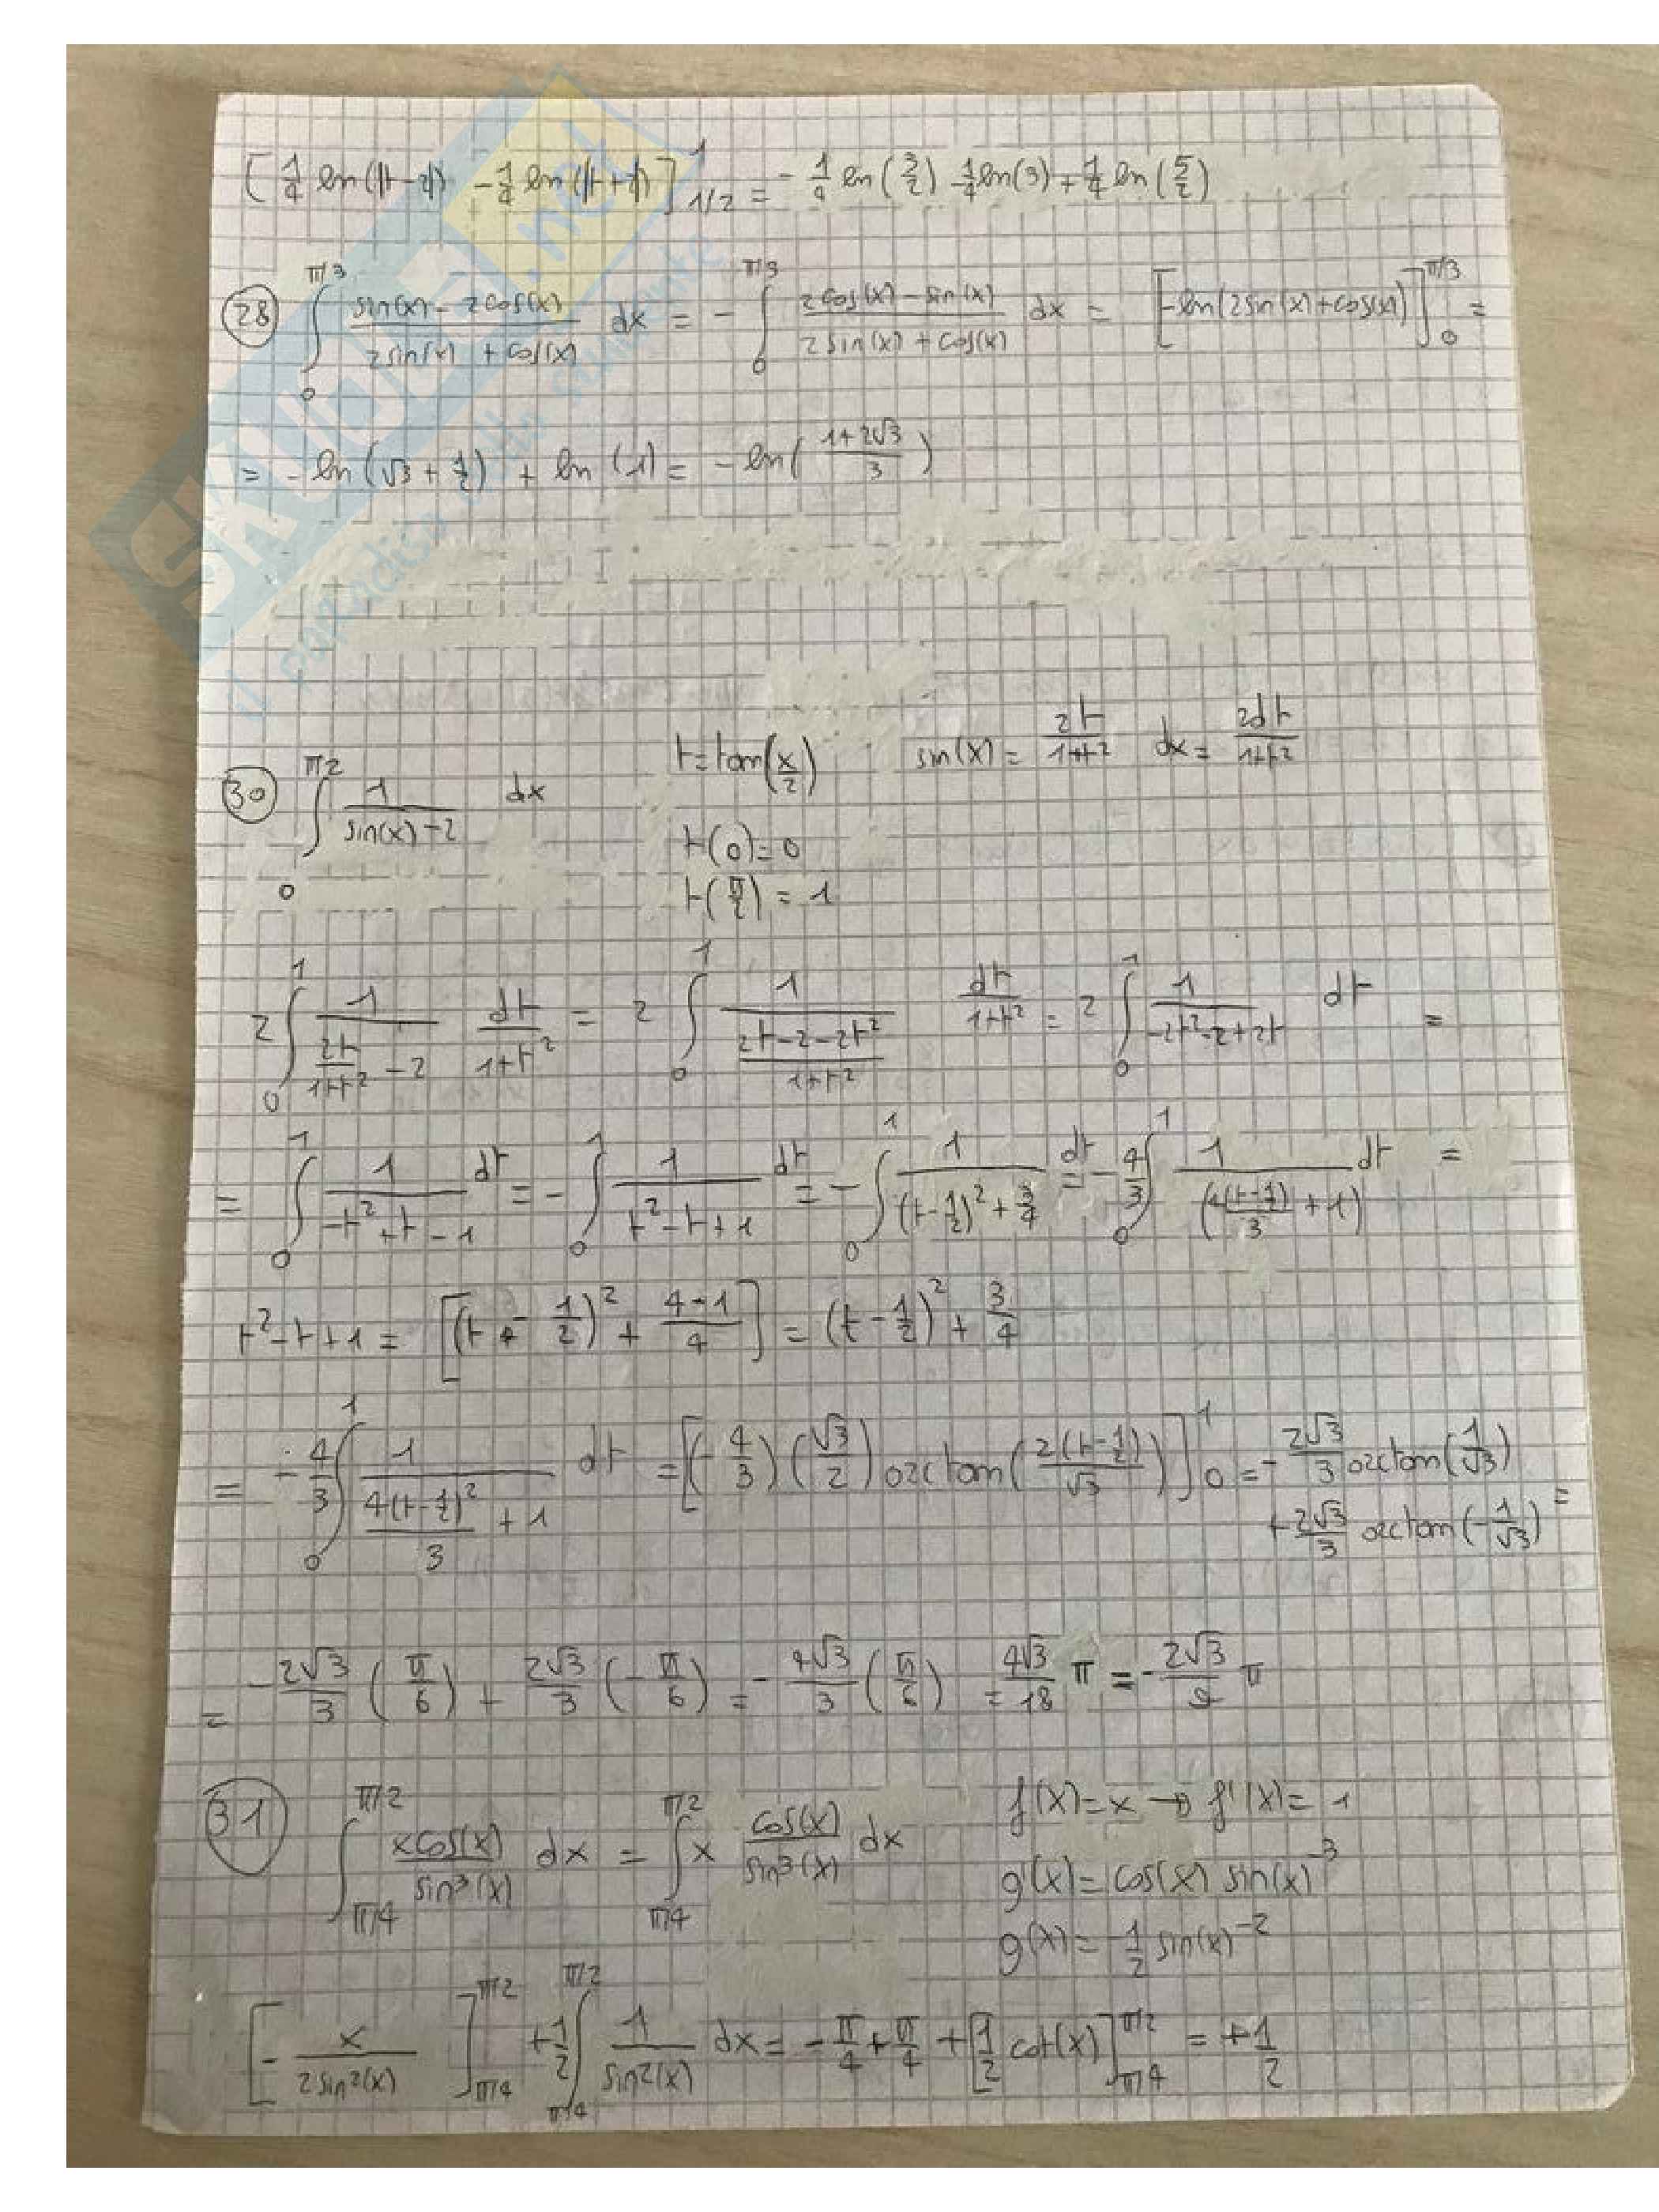 [1/4 ln(|t-2|) - 1/4 ln(|t+2|)]_{1/2}^{1} = -1/4 ln(3/2) - 1/4 ln(3) + 1/4 ln(5/2)
28 ∫_0^{π/3} (sin(x) - 2cos(x))/(2sin(x) + cos(x)) dx = - ∫_0^{π/3} (2cos(x) - sin(x))/(2sin(x) + cos(x)) dx = [-ln(2sin(x)+cos(x))]_0^{π/3} =
= -ln(√3 + 1/2) + ln(1) = -ln((1+2√3)/3)
t=tan(x/2) sin(x) = 2t/(1+t²) dx = 2dt/(1+t²)
30 ∫_0^{π/2} 1/(sin(x)-2) dx
t(0)=0
t(π/2) = 1
2∫_0^1 1/(2t/(1+t²) - 2) dt/(1+t²) = 2 ∫_0^1 1/((2t-2-2t²)/(1+t²)) dt/(1+t²) = 2 ∫_0^1 1/(-2t²-2+2t) dt =
= ∫_0^1 1/(-t²+t-1) dt = - ∫_0^1 1/(t²-t+1) dt = - ∫_0^1 1/((t-1/2)²+3/4) dt = -4/3 ∫_0^1 1/(4(t-1/2)/3 + 1) dt =
t²-t+1 = [(t - 1/2)² + (4-1)/4] = (t-1/2)² + 3/4
= -4/3 ∫_0^1 1/(4(t-1/2)²/3 + 1) dt = [(-4/3)(√3/2) arctan(2(t-1/2)/√3)]_0^1 = -2√3/3 arctan(1/√3)
+2√3/3 arctan(-1/√3) =
= -2√3/3 (π/6) + 2√3/3 (-π/6) = -4√3/3 (π/6) = 4√3/18 π = -2√3/9 π
31 ∫_{π/4}^{π/2} xcos(x)/sin³(x) dx = ∫_{π/4}^{π/2} x cos(x)/sin³(x) dx
f(x)=x → f'(x)= 1
g'(x)= cos(x) sin(x)^{-3}
g(x)= -1/2 sin(x)^{-2}
[-x/(2sin²(x))]_{π/4}^{π/2} + 1/2 ∫_{π/4}^{π/2} 1/sin²(x) dx = -π/4 + π/4 + [1/2 cot(x)]_{π/4}^{π/2} = +1/2
SKUOLA.net
il paradiso dello studente